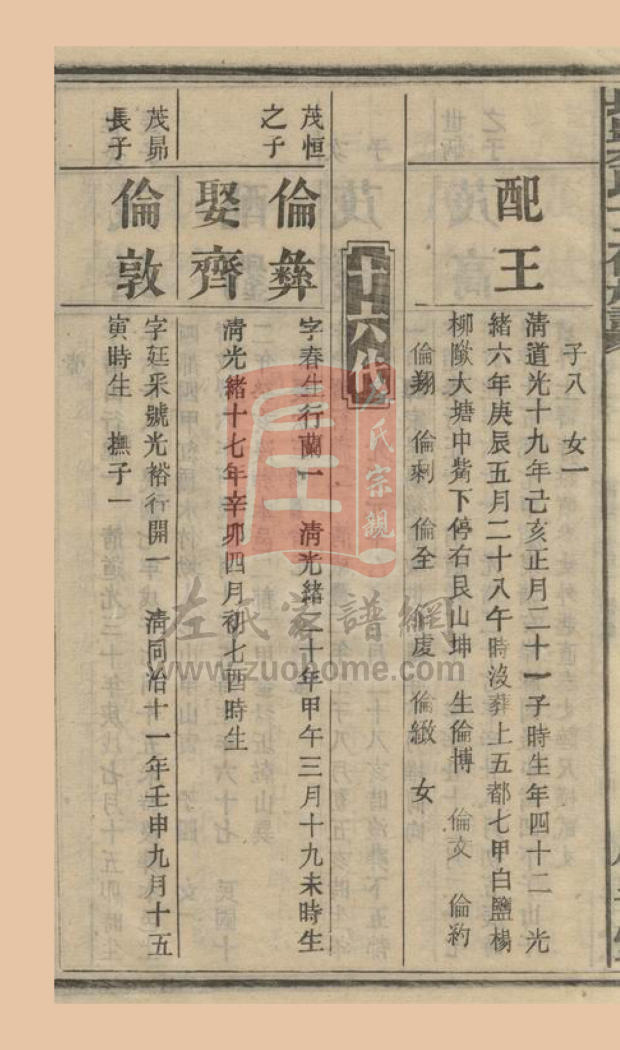 子八　女一
配王
清道光十九年己亥正月二十一子時生年四十二　光
緒六年庚辰五月二十八午時沒葬上五都七甲白鹽楊
柳隞大塘中觜下停右艮山坤　生倫博　倫文　倫豹
倫翔　倫剩　倫全　倫虔　倫緻　女
十六代
茂恒
之子
倫彝
字春生行蘭一　清光緒二十年甲午三月十九未時生
娶齊
清光緒十七年辛卯四月初七酉時生
茂昴
長子
倫敦
字廷采號光裕行開一　清同治十一年壬申九月十五
寅時生　撫子一
左氏宗親
左氏家譜網
www.zuohome.com